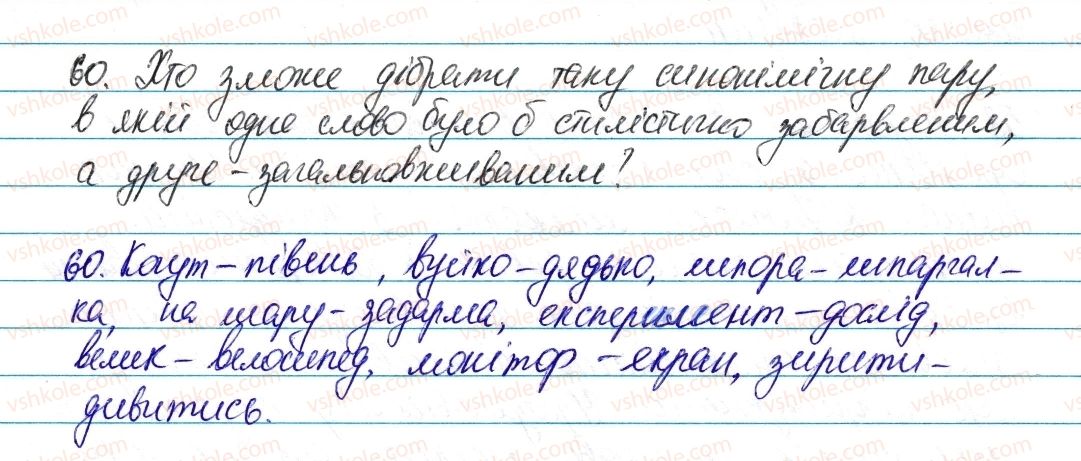 60. Хто зможе дібрати таку синонімічну пару,
в якій одне слово було б стилістично забарвленим,
а друге - загальновживаним?
60. Когут - півень, вуйко - дядько, шпора - шпаргал-
ка, на шару - задарма, експеримент - дослід,
велик - велосипед, монітор - екран, зирити -
дивитись.